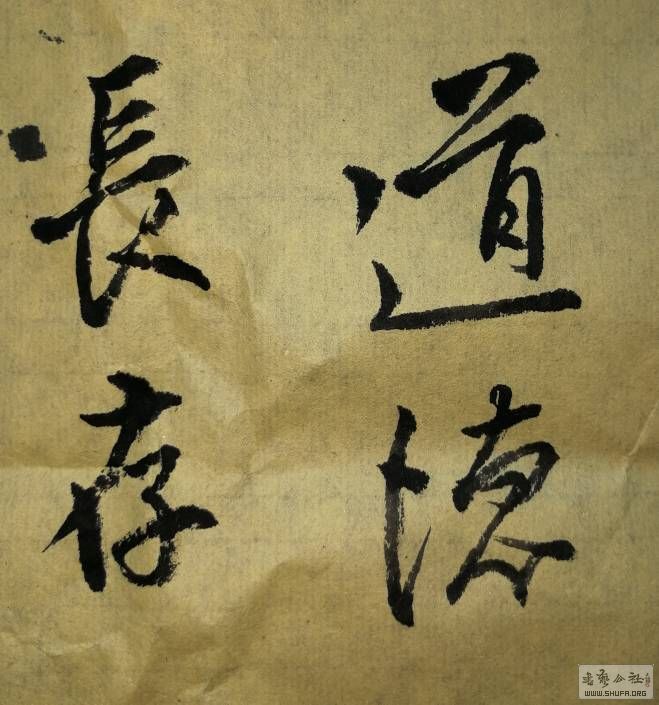 道德
長存
书艺公社
WWW.SHUFA.ORG